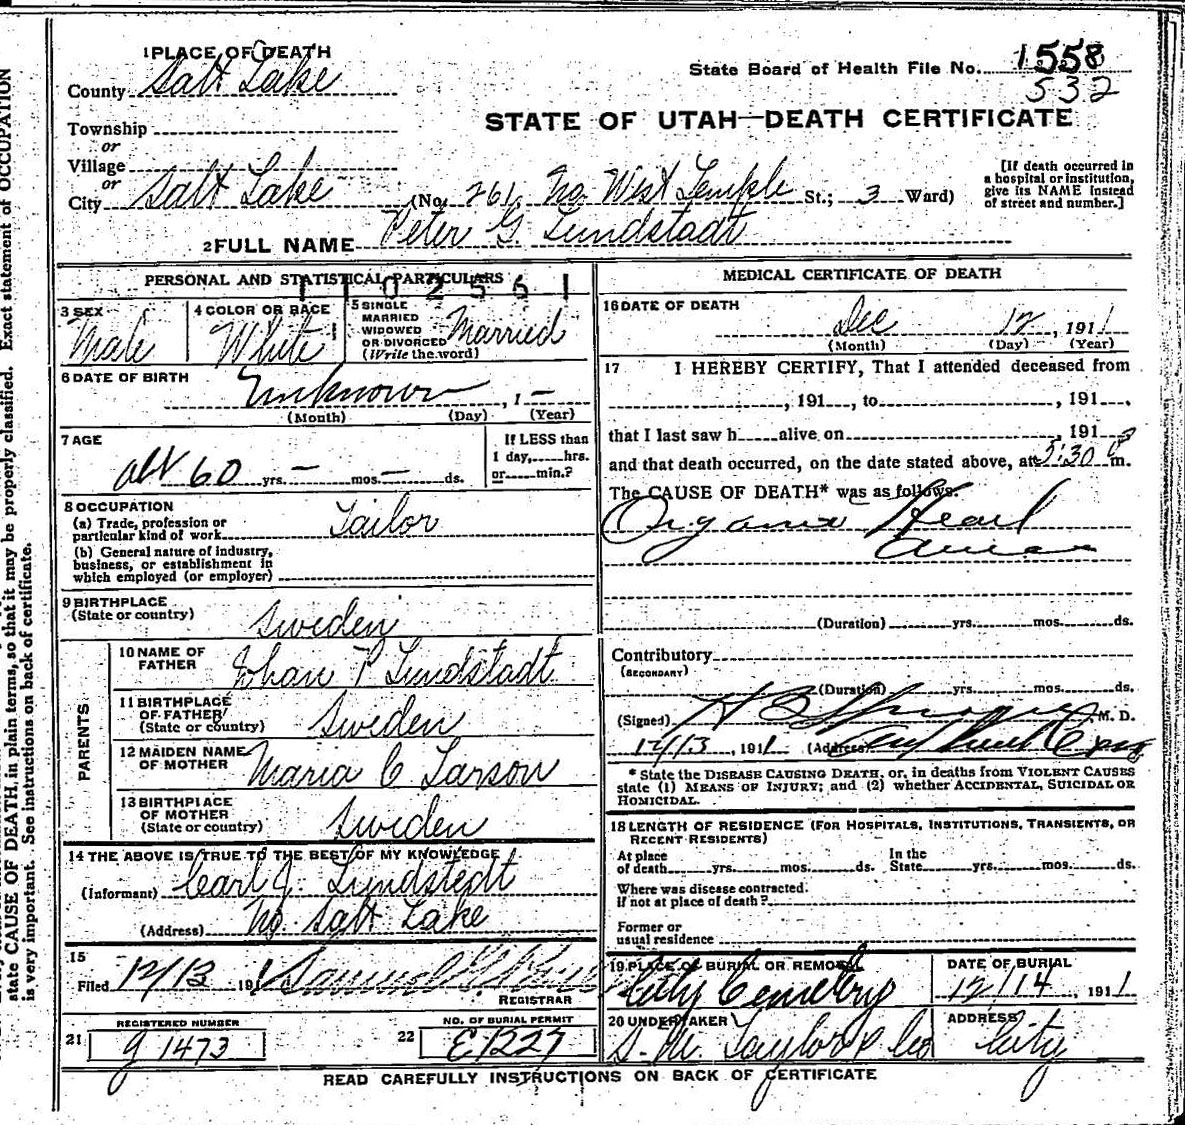 1 PLACE OF DEATH
County Salt Lake
State Board of Health File No. 1558
532
Township
or
Village
or
City Salt Lake (No. 261 No. West Temple St.; 3 Ward)
STATE OF UTAH—DEATH CERTIFICATE
[If death occurred in
a hospital or institution,
give its NAME instead
of street and number.]
2 FULL NAME Peter G. Lundstadt
PERSONAL AND STATISTICAL PARTICULARS
1102561
3 SEX
Male
4 COLOR OR RACE
White
5 SINGLE
MARRIED
WIDOWED
OR DIVORCED
(Write the word)
Married
6 DATE OF BIRTH
Unknown , 1 —
(Month) (Day) (Year)
7 AGE
abt 60 yrs. — mos. — ds.
If LESS than
1 day, hrs.
or min.?
8 OCCUPATION
(a) Trade, profession or
particular kind of work Tailor
(b) General nature of industry,
business, or establishment in
which employed (or employer)
9 BIRTHPLACE
(State or country) Sweden
PARENTS
10 NAME OF
FATHER Johan P Lundstadt
11 BIRTHPLACE
OF FATHER
(State or country) Sweden
12 MAIDEN NAME
OF MOTHER Maria C Larson
13 BIRTHPLACE
OF MOTHER
(State or country) Sweden
14 THE ABOVE IS TRUE TO THE BEST OF MY KNOWLEDGE
(Informant) Carl J. Lundstedt
(Address) No. Salt Lake
15
Filed 12/13 191
REGISTRAR
REGISTERED NUMBER
21 g 1473
NO. OF BURIAL PERMIT
22 E1227
MEDICAL CERTIFICATE OF DEATH
16 DATE OF DEATH
Dec 12, 1911
(Month) (Day) (Year)
17 I HEREBY CERTIFY, That I attended deceased from
, 191 , to , 191 ,
that I last saw h alive on , 191
and that death occurred, on the date stated above, at :30 m.
The CAUSE OF DEATH* was as follows:
Organic Heart
(Duration) yrs. mos. ds.
Contributory
(SECONDARY)
(Duration) yrs. mos. ds.
(Signed) M. D.
12/13, 1911 (Address)
* State the DISEASE CAUSING DEATH, or, in deaths from VIOLENT CAUSES
state (1) MEANS OF INJURY; and (2) whether ACCIDENTAL, SUICIDAL OR
HOMICIDAL.
18 LENGTH OF RESIDENCE (FOR HOSPITALS, INSTITUTIONS, TRANSIENTS, OR
RECENT RESIDENTS)
At place
of death yrs. mos. ds.
In the
State yrs. mos. ds.
Where was disease contracted.
if not at place of death?
Former or
usual residence
19 PLACE OF BURIAL OR REMOVAL
City Cemetery
DATE OF BURIAL
12/14, 1911
20 UNDERTAKER
S. M. Taylor & Co
ADDRESS
City
READ CAREFULLY INSTRUCTIONS ON BACK OF CERTIFICATE
state CAUSE OF DEATH, in plain terms, so that it may be properly classified. Exact statement of OCCUPATION
is very important. See instructions on back of certificate.